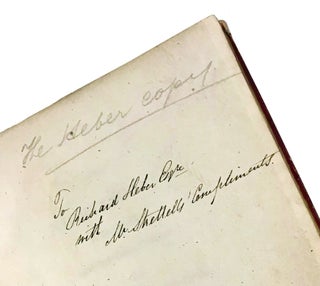 The Heber copy.
To
Richard Heber Esqre
with
Mr. Skettells' Compliments